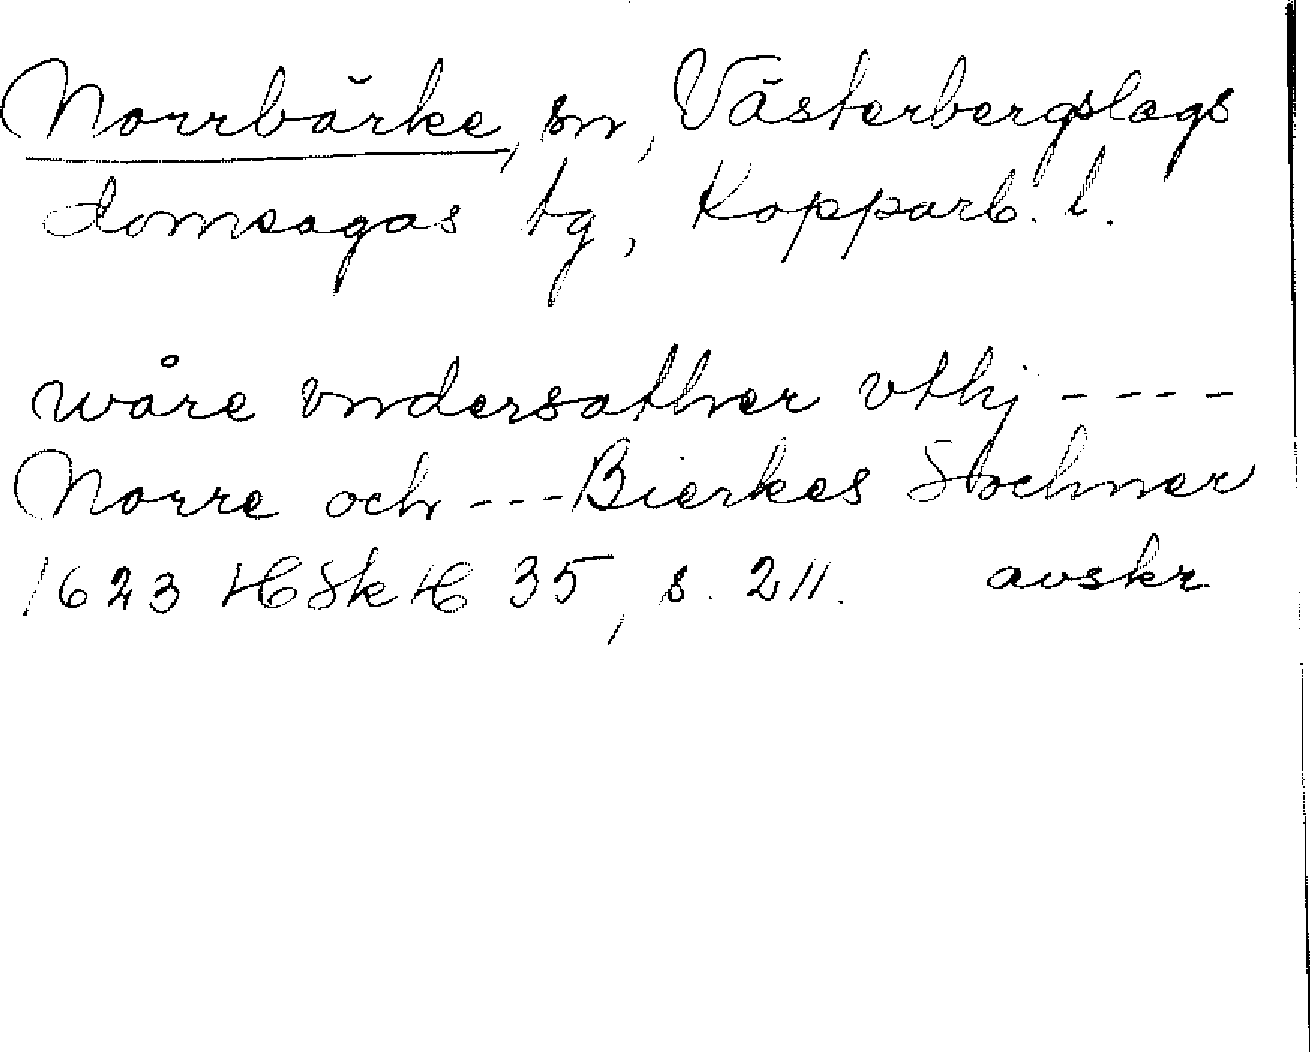 Norrbärke, sn, Västerbergslags
domsagas tg, Kopparb. l.
wåre vndersather vthj ----
Norre och --- Bierkes Sochner
1623 HSkH 35, s. 211. avskr